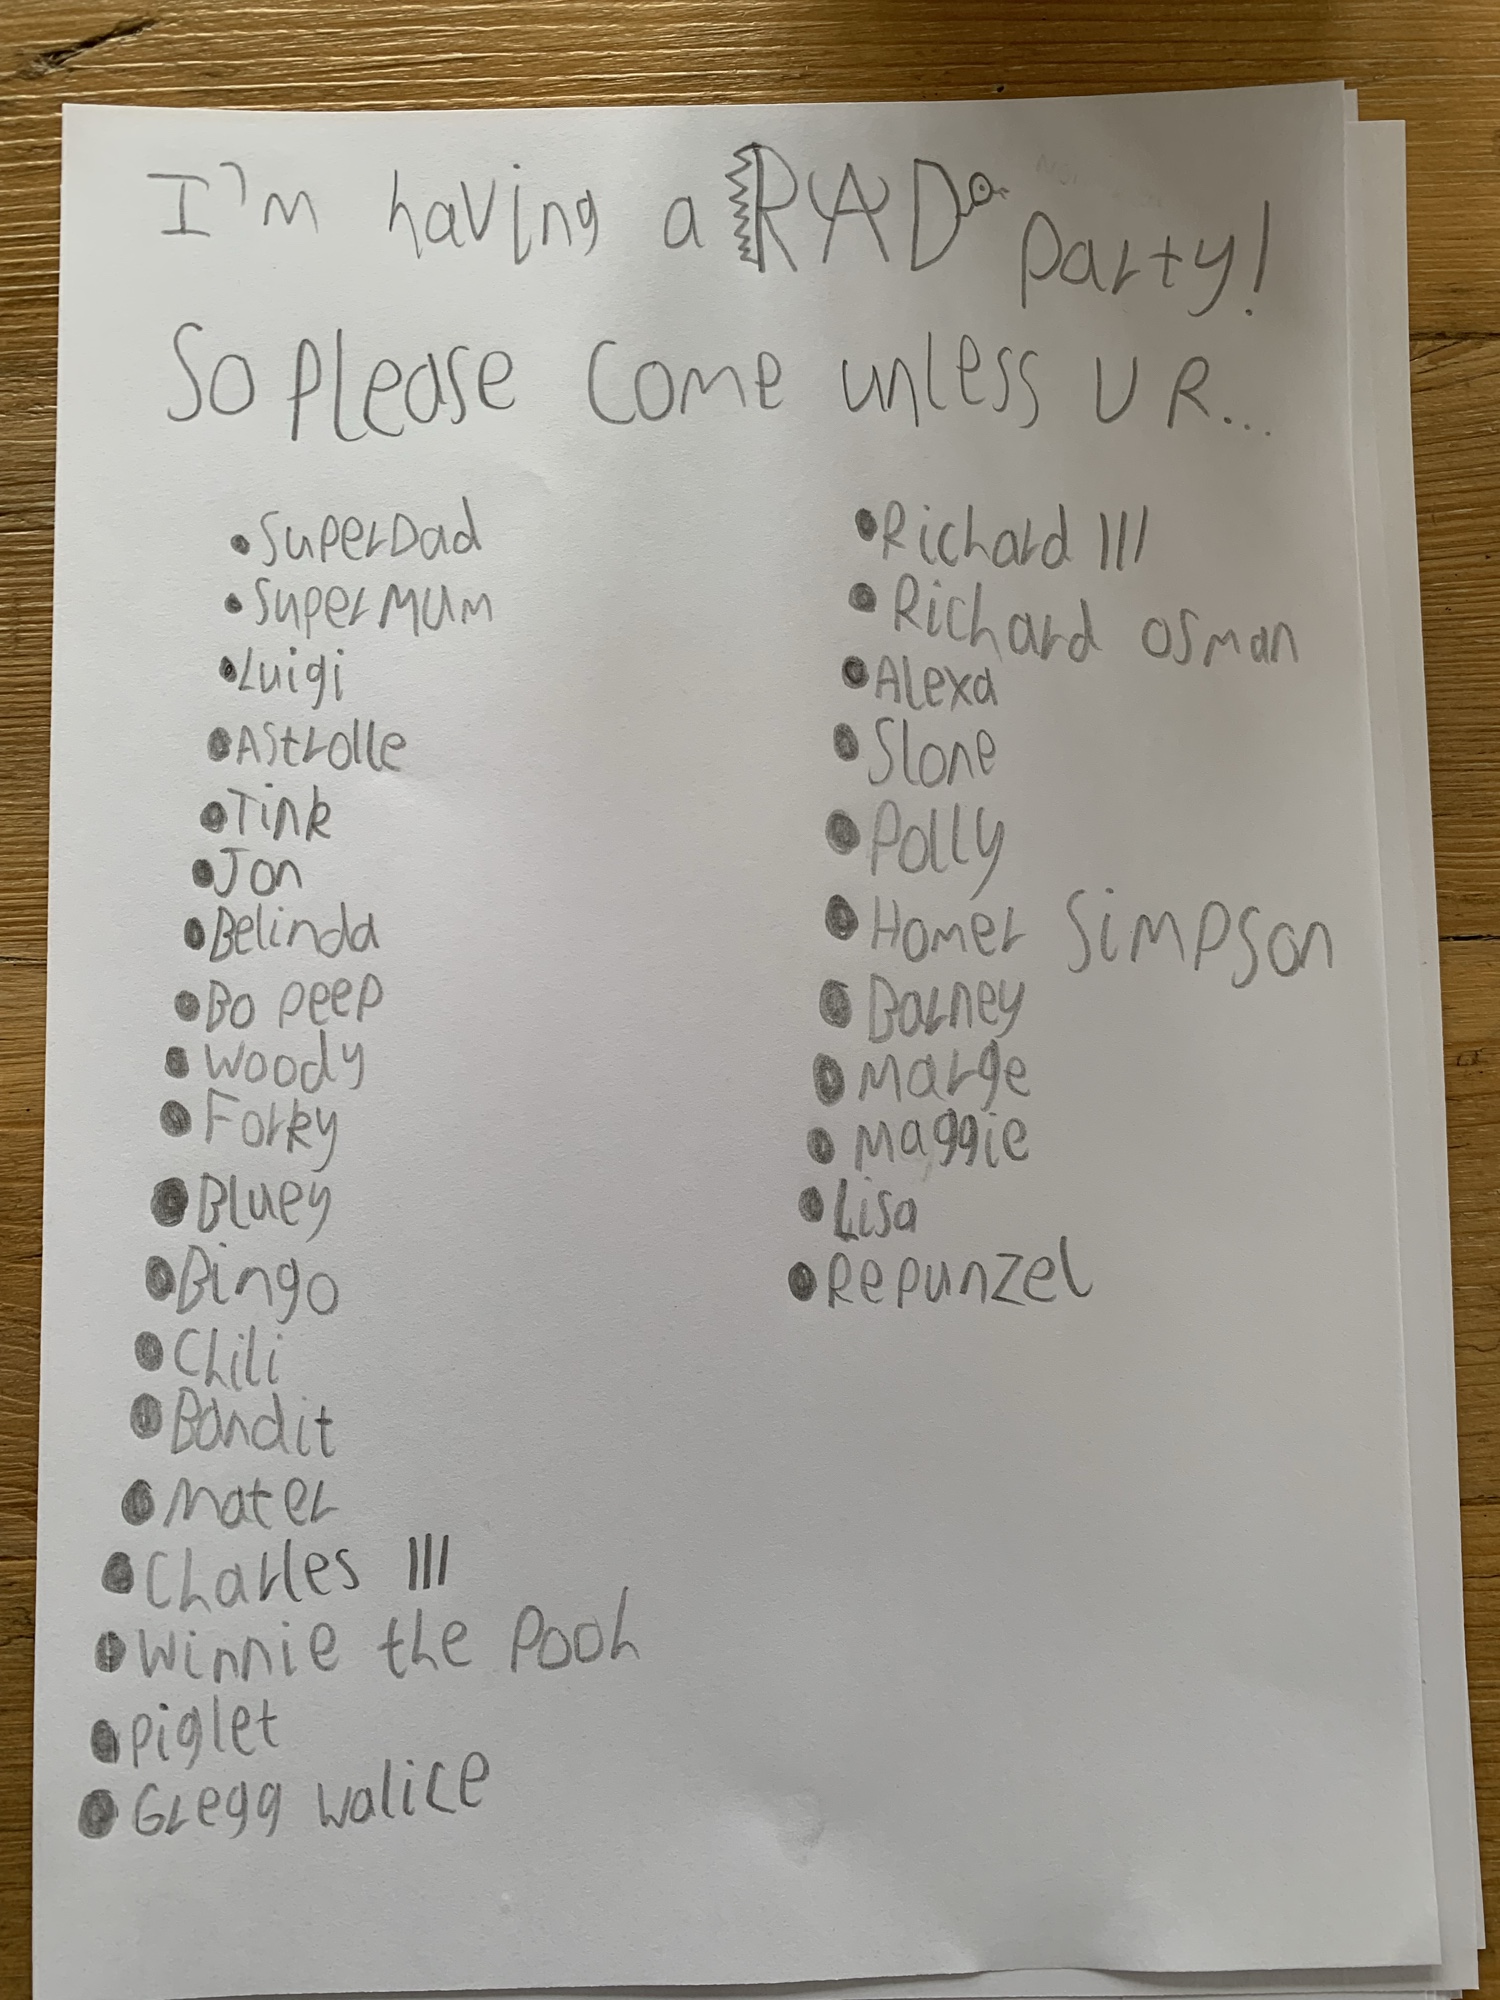 I'm having a RAD party!
So please come unless U R...
• SuperDad
• Super Mum
• Luigi
• Astrolle
• Tink
• Jon
• Belinda
• Bo peep
• Woody
• Forky
• Bluey
• Bingo
• Chili
• Bandit
• Mater
• Charles III
• Winnie the Pooh
• Piglet
• Gregg walice
• Richard III
• Richard osman
• Alexa
• Slone
• Polly
• Homer Simpson
• Barney
• Marge
• Maggie
• Lisa
• Repunzel